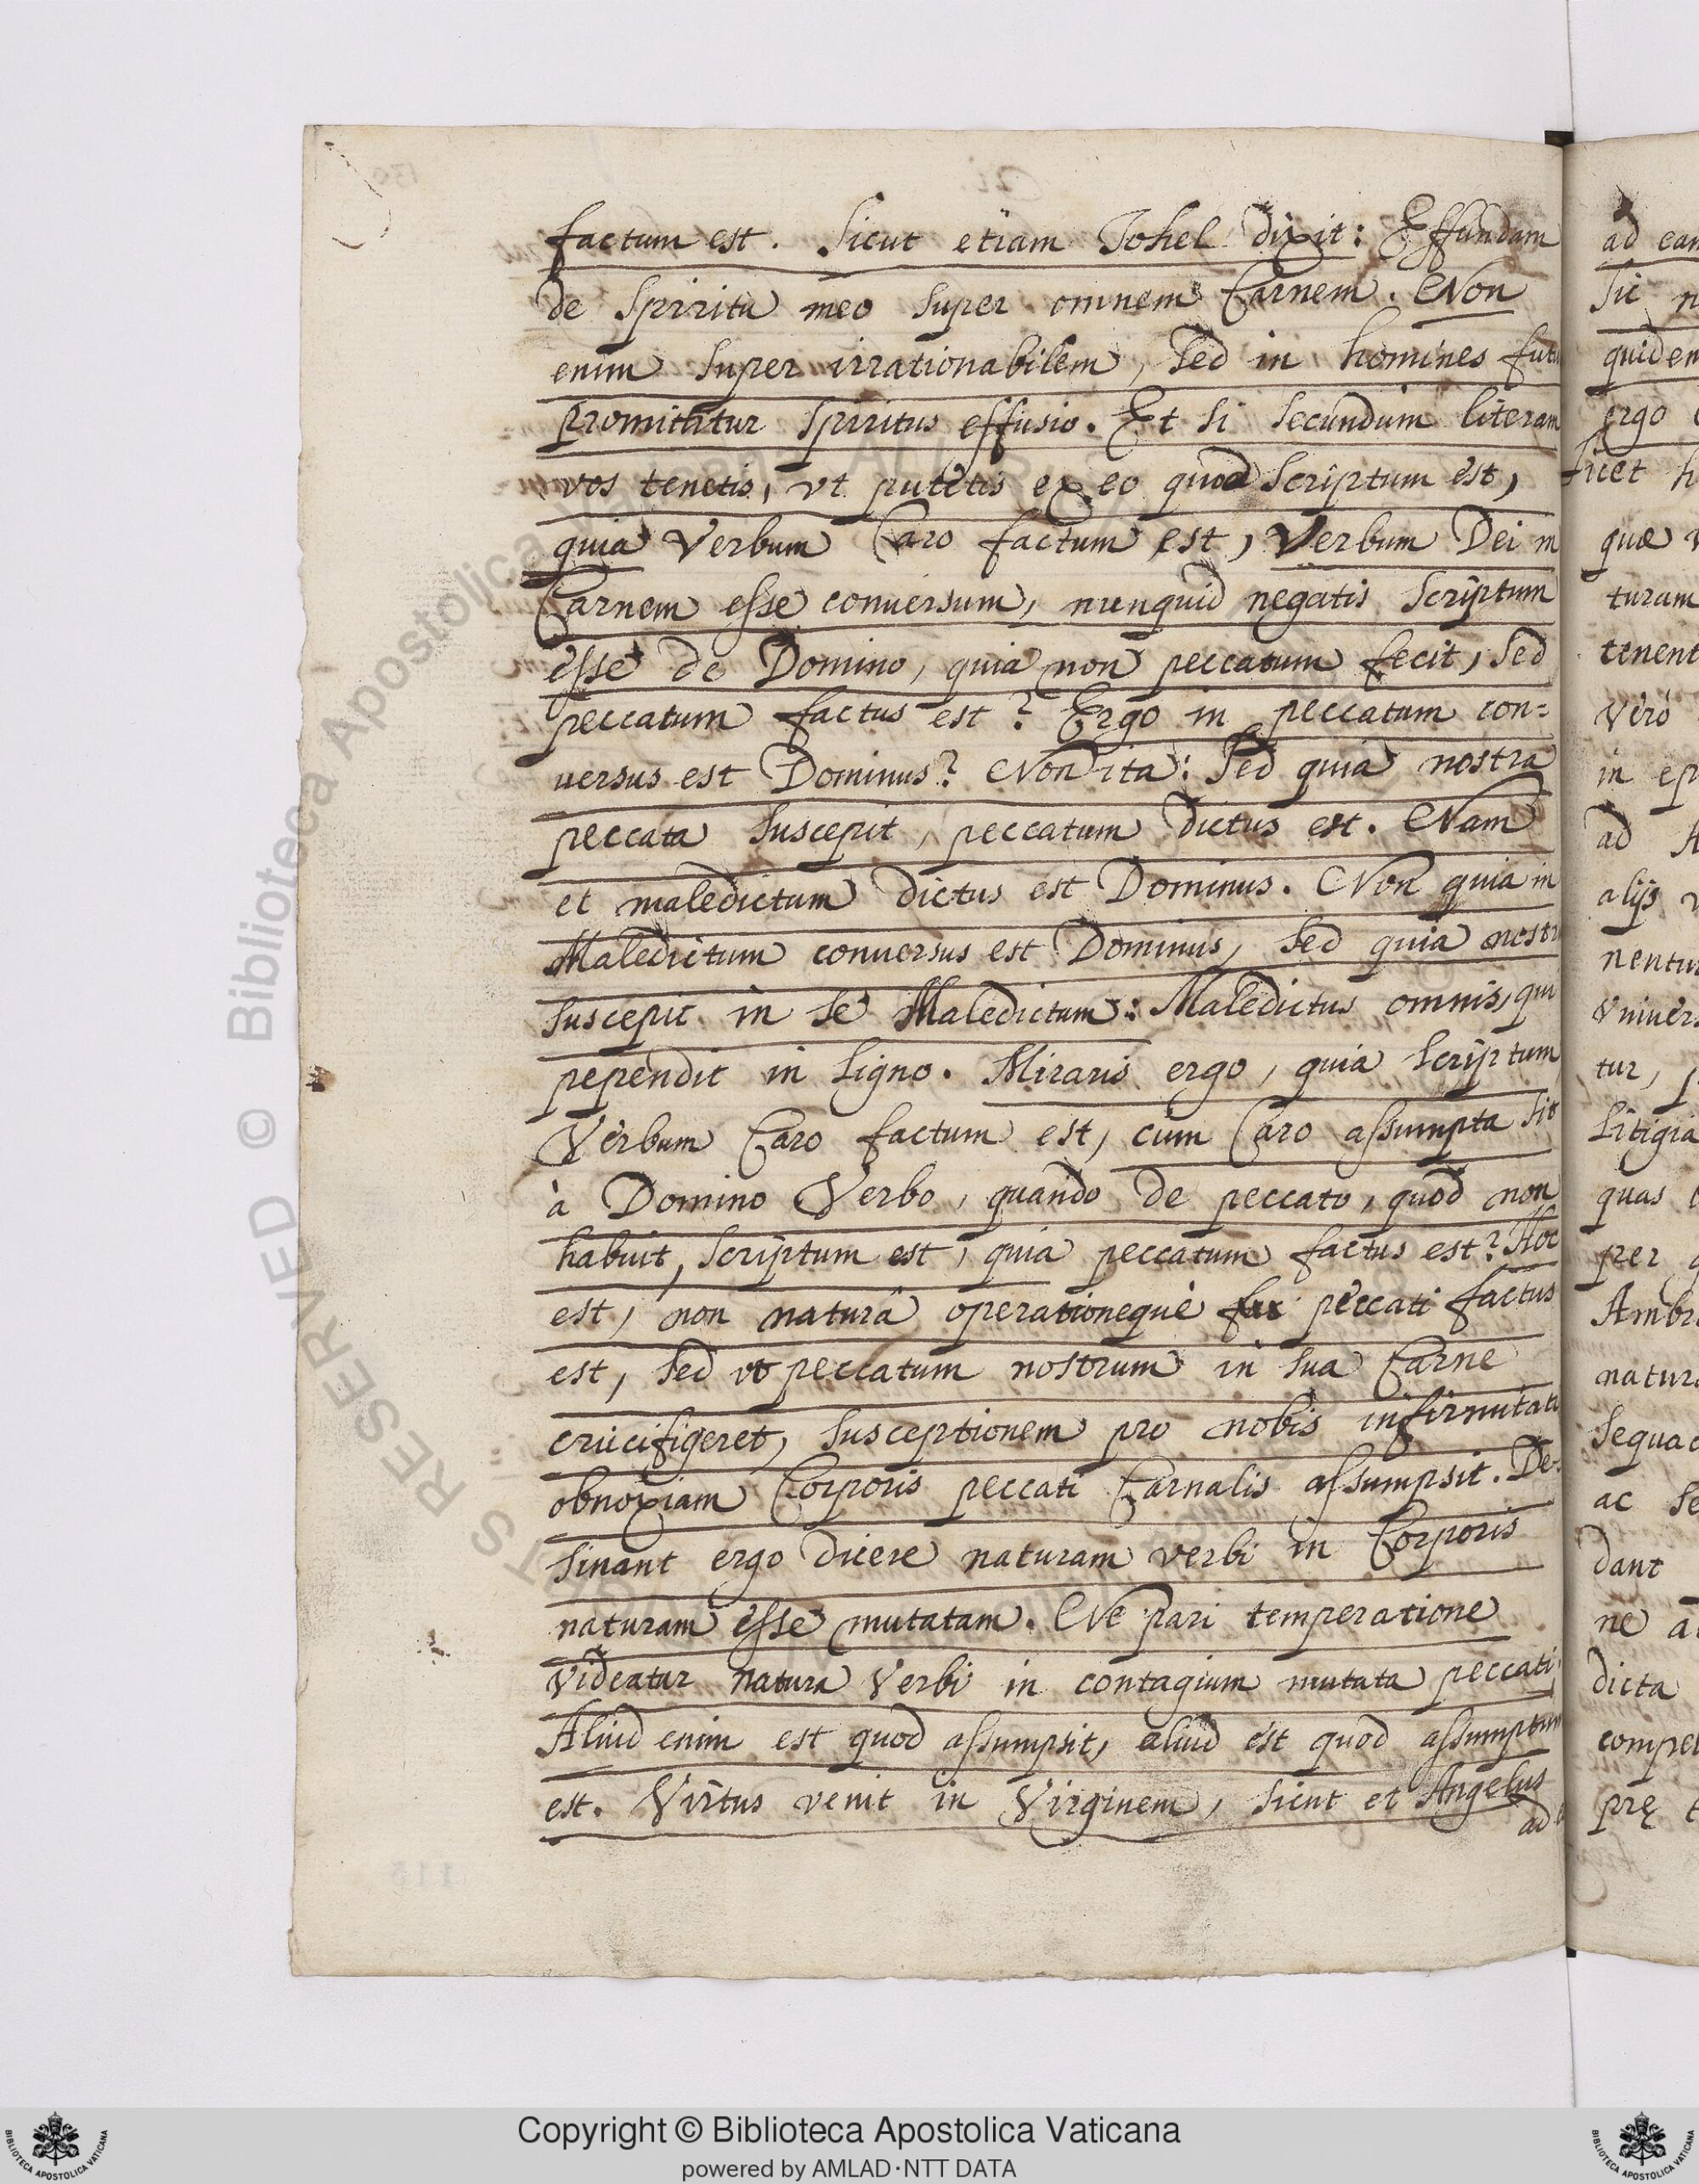 factum est. Sicut etiam Johel dixit: Effundam
de Spiritu meo super omnem Carnem. Non
enim super irrationabilem, sed in homines
promittitur Spiritus effusio. Et si secundum literam
vos tenetis, vt putetis ex eo quod Scriptum est,
quia Verbum Caro factum est, Verbum Dei in
Carnem esse conuersum, nunquid negatis Scriptum
esse de Domino, quia non peccatum fecit, sed
peccatum factus est? Ergo in peccatum con=
uersus est Dominus? Non ita: Sed quia nostra
peccata suscepit, peccatum dictus est. Nam
et maledictum dictus est Dominus. Non quia in
Maledictum conuersus est Dominus, sed quia nostr
suscepit in se Maledictum: Maledictus omnis, qui
pependit in ligno. Miraris ergo, quia Scriptum
Verbum Caro factum est, cum Caro assumpta sit
à Domino Verbo, quando de peccato, quod non
habuit, Scriptum est, quia peccatum factus est? Hoc
est, non naturâ operationeque peccati factus
est, sed vt peccatum nostrum in sua Carne
crucifigeret, susceptionem pro nobis infirmitati
obnoxiam Corporis peccati Carnalis assumpsit. De=
sinant ergo dicere naturam verbi in Corporis
naturam esse mutatam. Ne pari temperatione
Videatur natura Verbi in contagium mutata peccati,
Aliud enim est quod assumpsit, aliud est quod assumptum
est. Virtus venit in Virginem, sicut et Angelus
ad
ad eam
Sic n
quidem
ergo
licet h
quæ v
turam
tenent
Verò
in ep
ad A
alijs v
nentur
Vniuers
tur, p
Litigia
quas
per q
Ambr
natur
Sequac
ac se
dant
ne a
dicta
compe
prę t
© Biblioteca Apostolica Vaticana
RESERVED
Copyright © Biblioteca Apostolica Vaticana
powered by AMLAD·NTT DATA
BIBLIOTECA APOSTOLICA VATICANA
BIBLIOTECA APOSTOLICA VATICANA